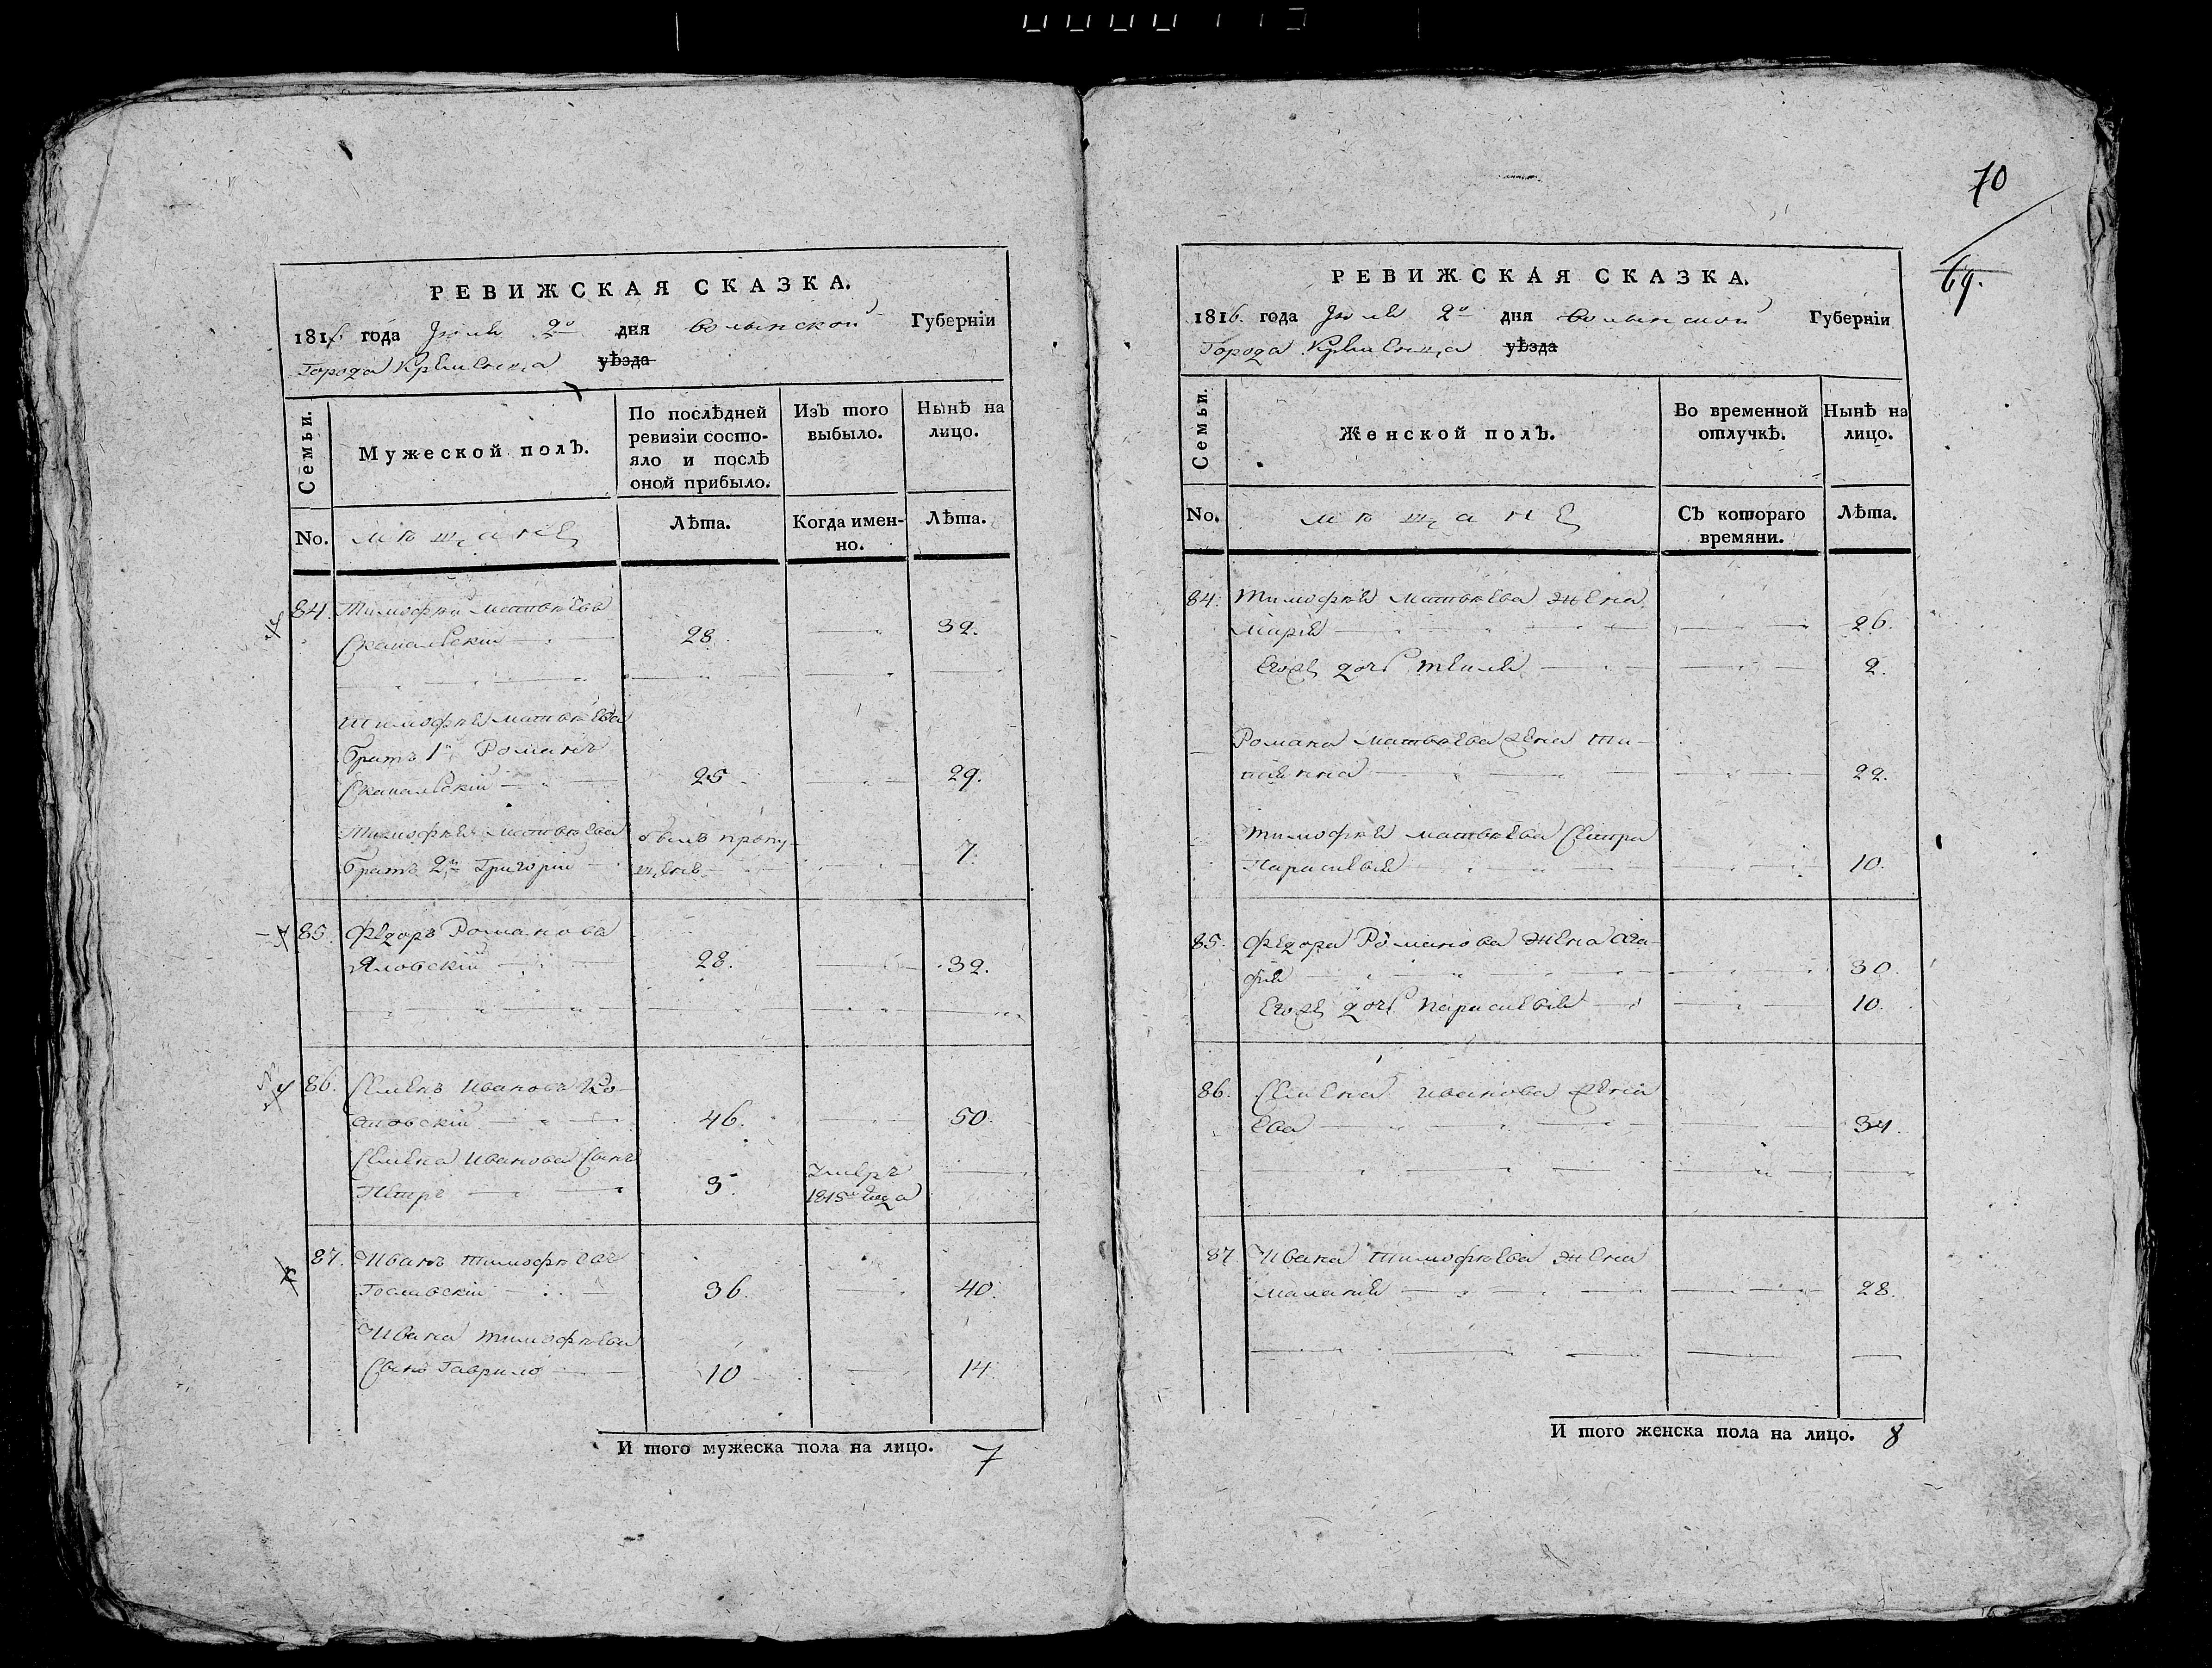 РЕВИЖСКАЯ СКАЗКА.
1816 года Июля 2го дня Волынской Губерніи
Города Кременца уѣзда
Семьи.
Мужеской полъ.
По послѣдней ревизіи состо-
яло и послѣ
оной прибыло.
Изъ того
выбыло.
Нынѣ на
лицо.
No.
мѣщане
Лѣта.
Когда имен-
но.
Лѣта.
84. Тимофѣй Матвѣевъ
28. 32.
Тимофѣя Матвѣева
братъ 1й Романъ
25 29.
Тимофѣя Матвѣева былъ пропу-
братъ 2й Григорій щенъ 7.
85. Федоръ Романовъ
Яловскій 28. 32.
86. Семенъ Ивановъ Ко-
46. 50.
Семена Иванова сынъ Умеръ
Петръ 3. 1815го года
87. Иванъ Тимофѣевъ
36. 40.
Ивана Тимофѣева
сынъ Гаврило 10 14.
И того мужеска пола на лицо. 7
70
69.
РЕВИЖСКАЯ СКАЗКА.
1816. года Июля 2го дня Волынской Губерніи
Города Кременца уѣзда
Семьи.
Женской полъ.
Во временной
отлучкѣ.
Нынѣ на
лицо.
No.
мѣщане
Съ котораго
времяни.
Лѣта.
84. Тимофѣя Матвѣева жена
Марія 26.
Егоже дочь 2.
Романа Матвѣева жена Та-
22.
Тимофѣя Матвѣева сестра
Параскевія 10.
85. Федора Романова жена Ага-
фія 30.
Егоже дочь Параскевія 10.
86. Семена Иванова жена
Ева 34.
87 Ивана Тимофѣева жена
Маланія 28.
И того женска пола на лицо. 8